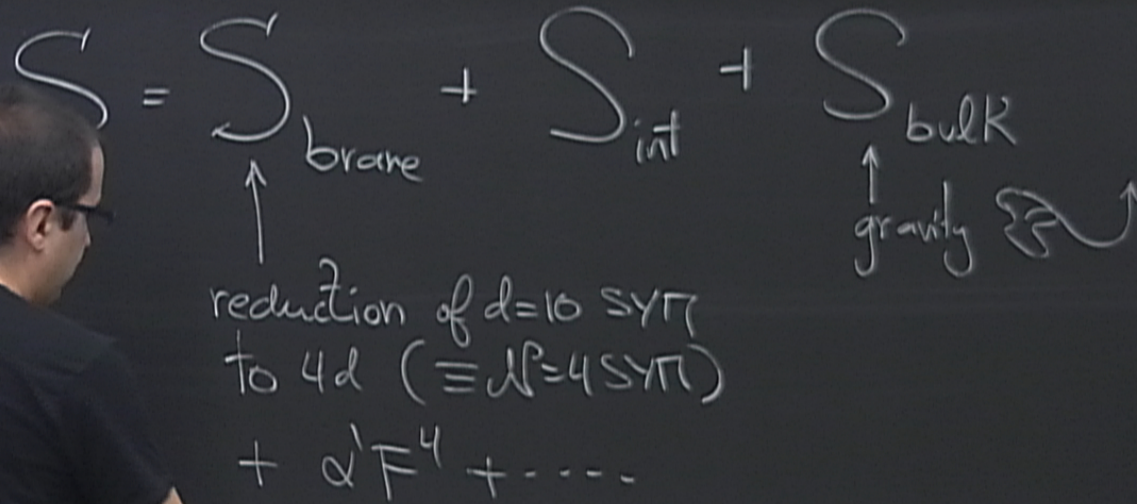 S = S_brane + S_int + S_bulk
↑ ↑
gravity
reduction of d=10 SYM
to 4d (≡ N=4 SYM)
+ α' F^4 + ....